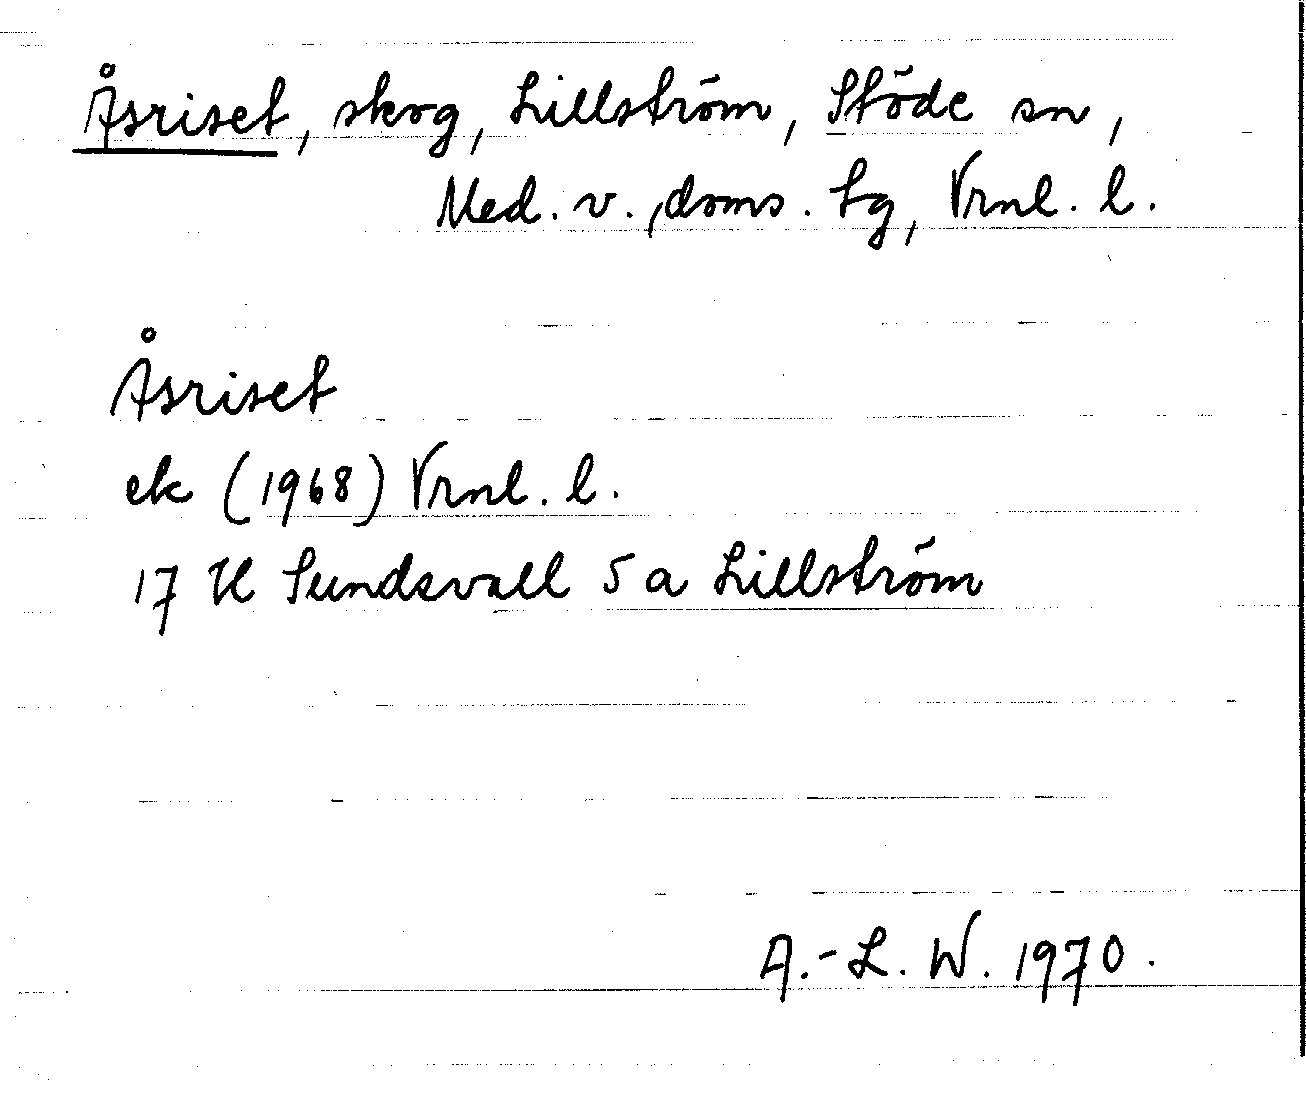 Åsriset, skog, Lillström, Stöde sn,
Med. v., doms. tg, Vrnl. l.
Åsriset
ek (1968) Vrnl. l.
17 H Sundsvall 5 a Lillström
A.-L. W. 1970.